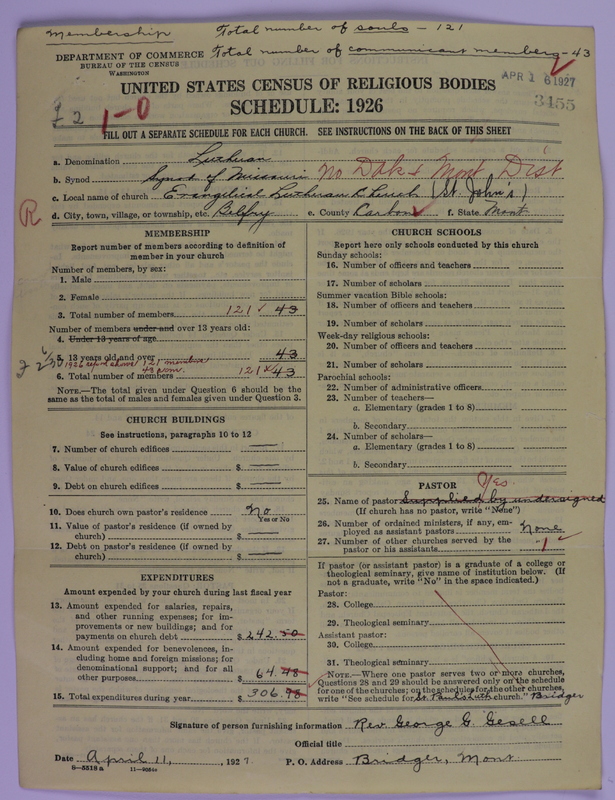 Membership Total number of souls - 121
Total number of communicant members - 43
DEPARTMENT OF COMMERCE
BUREAU OF THE CENSUS
WASHINGTON
APR 16 1927
UNITED STATES CENSUS OF RELIGIOUS BODIES
3455
SCHEDULE: 1926
1-0
FILL OUT A SEPARATE SCHEDULE FOR EACH CHURCH. SEE INSTRUCTIONS ON THE BACK OF THIS SHEET
a. Denomination Lutheran
b. Synod Synod of Missouri No Dak & Mont Dist
c. Local name of church Evangelical Lutheran Church (St. John's)
d. City, town, village, or township, etc. Belfry e. County Carbon f. State Mont
R
MEMBERSHIP
Report number of members according to definition of
member in your church
Number of members, by sex:
1. Male
2. Female
3. Total number of members 121 43
Number of members under and over 13 years old:
4. Under 13 years of age
5. 13 years old and over 43
1926 report shows 121 members
43 com.
6. Total number of members 121 43
NOTE.—The total given under Question 6 should be
the same as the total of males and females given under Question 3.
CHURCH BUILDINGS
See instructions, paragraphs 10 to 12
7. Number of church edifices
8. Value of church edifices $
9. Debt on church edifices $
10. Does church own pastor's residence No
Yes or No
11. Value of pastor's residence (if owned by
church) $
12. Debt on pastor's residence (if owned by
church) $
EXPENDITURES
Amount expended by your church during last fiscal year
13. Amount expended for salaries, repairs,
and other running expenses; for im-
provements or new buildings; and for
payments on church debt $ 242.50
14. Amount expended for benevolences, in-
cluding home and foreign missions; for
denominational support; and for all
other purposes 64.48
15. Total expenditures during year $ 306.98
CHURCH SCHOOLS
Report here only schools conducted by this church
Sunday schools:
16. Number of officers and teachers
17. Number of scholars
Summer vacation Bible schools:
18. Number of officers and teachers
19. Number of scholars
Week-day religious schools:
20. Number of officers and teachers
21. Number of scholars
Parochial schools:
22. Number of administrative officers
23. Number of teachers—
a. Elementary (grades 1 to 8)
b. Secondary
24. Number of scholars—
a. Elementary (grades 1 to 8)
b. Secondary
PASTOR
Yes
25. Name of pastor Supplied by undersigned
(If church has no pastor, write "None")
26. Number of ordained ministers, if any, em-
ployed as assistant pastors None
27. Number of other churches served by the
pastor or his assistants 1
If pastor (or assistant pastor) is a graduate of a college or
theological seminary, give name of institution below. (If
not a graduate, write "No" in the space indicated.)
Pastor:
28. College
29. Theological seminary
Assistant pastor:
30. College
31. Theological seminary
NOTE.—Where one pastor serves two or more churches,
Questions 28 and 29 should be answered only on the schedule
for one of the churches; on the schedules for the other churches,
write "See schedule for St. Pauls Luth church." Bridger
Signature of person furnishing information Rev. George G. Gesell
Official title
Date April 11, 1927. P. O. Address Bridger, Mont
8-5518a 11-90544